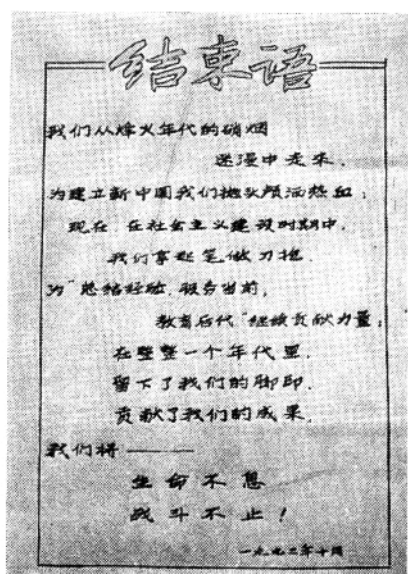 结束语
我们从烽火年代的硝烟
迷漫中走来，
为建立新中国我们抛头颅洒热血；
现在，在社会主义建设时期中，
我们拿起笔做刀枪，
为“总结经验，服务当前，
教育后代”继续贡献力量；
在整整一个年代里，
留下了我们的脚印，
贡献了我们的成果，
我们将———
生命不息
战斗不止！
一九九二年十月